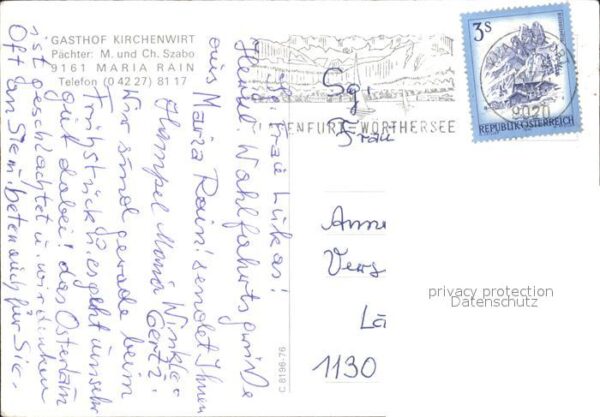 GASTHOF KIRCHENWIRT
Pächter: M. und Ch. Szabo
9161 MARIA RAIN
Telefon (0 42 27) 81 17
Frau Lukas!
Herzl. Wahlfahrtsgrüße
aus Maria Rain! sendet Ihnen
Maria Winkler
Wir sind gerade beim
Frühstück u. es geht uns sehr
gut dabei! das Osterlam
ist geschlachtet u. wir denken
Oft an Sie u. beten auch für Sie.
C 8196-76
ENFURT - WÖRTHERSEE
3S
REPUBLIK ÖSTERREICH
9020
Frau
Anne
1130
privacy protection
Datenschutz